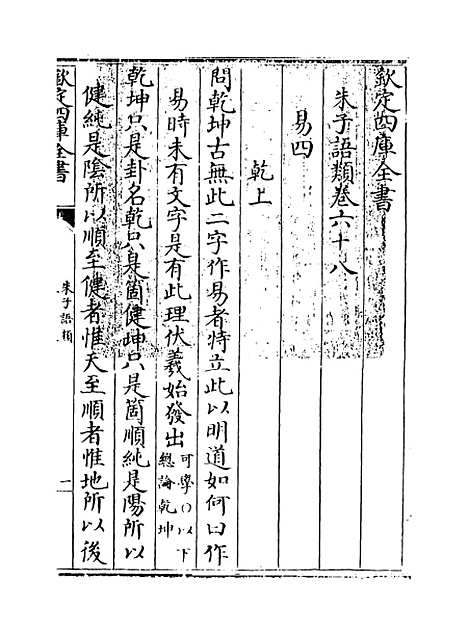 欽定四庫全書
朱子語類卷六十八
易四
乾上
問乾坤古無此二字作易者特立此以明道如何曰作
易時未有文字是有此理伏羲始發出可學〇以下總論乾坤
乾坤只是卦名乾只是箇健坤只是箇順純是陽所以
健純是陰所以順至健者惟天至順者惟地所以後
欽定四庫全書
朱子語類
一